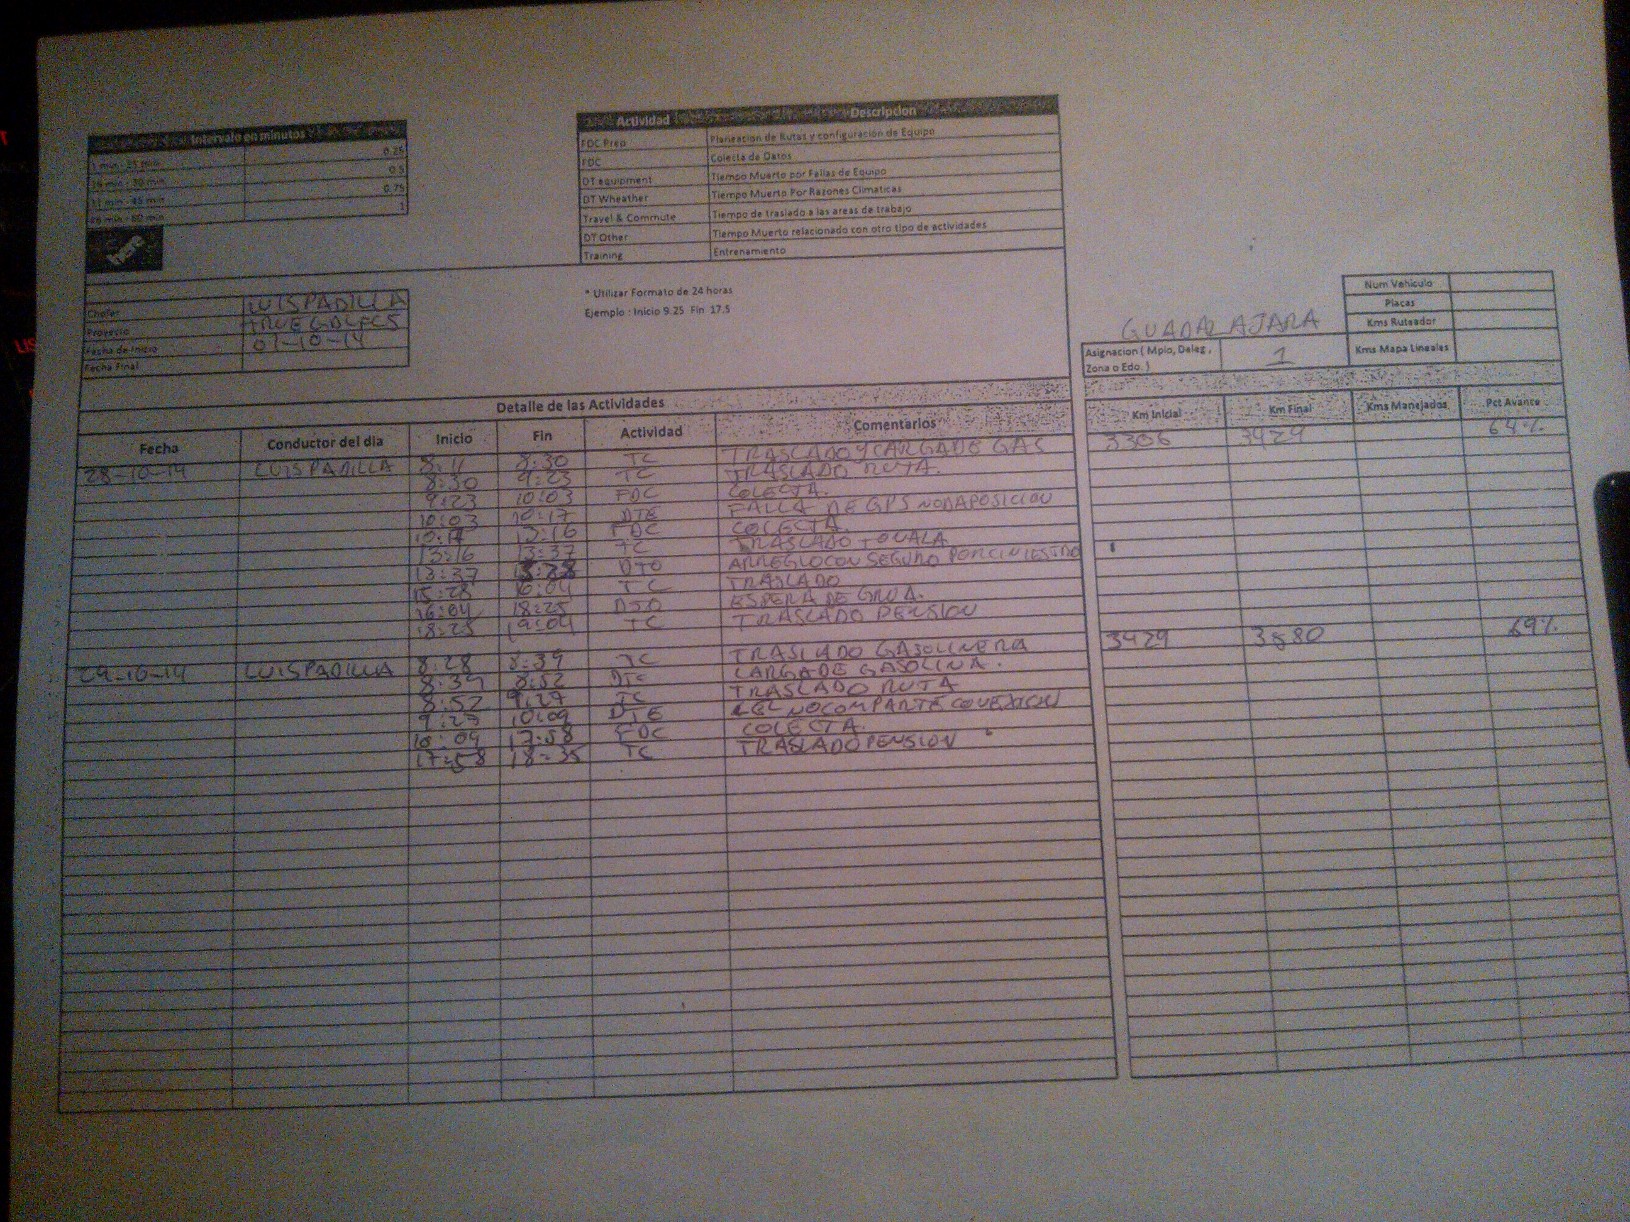 Intervalo en minutos
1 min - 15 min 0.25
16 min - 30 min 0.5
31 min - 45 min 0.75
46 min - 60 min 1
Actividad Descripcion
FDC Prep Planeacion de Rutas y configuración de Equipo
FDC Colecta de Datos
DT equipment Tiempo Muerto por Fallas de Equipo
DT Wheather Tiempo Muerto Por Razones Climaticas
Travel & Commute Tiempo de traslado a las areas de trabajo
DT Other Tiempo Muerto relacionado con otro tipo de actividades
Training Entrenamiento
* Utilizar Formato de 24 horas
Ejemplo : Inicio 9.25 Fin 17.5
Chofer LUIS PADILLA
Proyecto
Fecha de Inicio 07-10-14
Fecha Final
GUADALAJARA
Asignacion ( Mpio, Deleg , Zona o Edo. ) 1
Num Vehiculo
Placas
Kms Ruteador
Kms Mapa Lineales
Detalle de las Actividades
Fecha Conductor del dia Inicio Fin Actividad Comentarios Km Inicial Km Final Kms Manejados Pct Avance
28-10-14 LUIS PADILLA 8:11 8:30 TC TRASLADO Y CARGA DE GAS 3306 3429 64%
8:30 9:23 TC TRASLADO RUTA.
9:23 10:03 FDC COLECTA.
10:03 10:17 DTE FALLA DE GPS NO DA POSICION
10:17 13:16 FDC COLECTA.
13:16 13:37 TC TRASLADO TONALA
13:37 15:28 DTO ARREGLO CON SEGURO POR CINIESTRO
15:28 16:04 TC TRASLADO
16:04 18:25 DTO ESPERA DE GRUA.
18:25 19:04 TC TRASLADO PENSION
29-10-14 LUIS PADILLA 8:28 8:39 TC TRASLADO GASOLINERA 3429 3580 69%
8:39 8:52 CARGA DE GASOLINA.
8:52 9:27 TC TRASLADO RUTA
9:27 10:09 DTE NO COMPARTE
10:09 17:58 FDC COLECTA.
17:58 18:35 TC TRASLADO PENSION